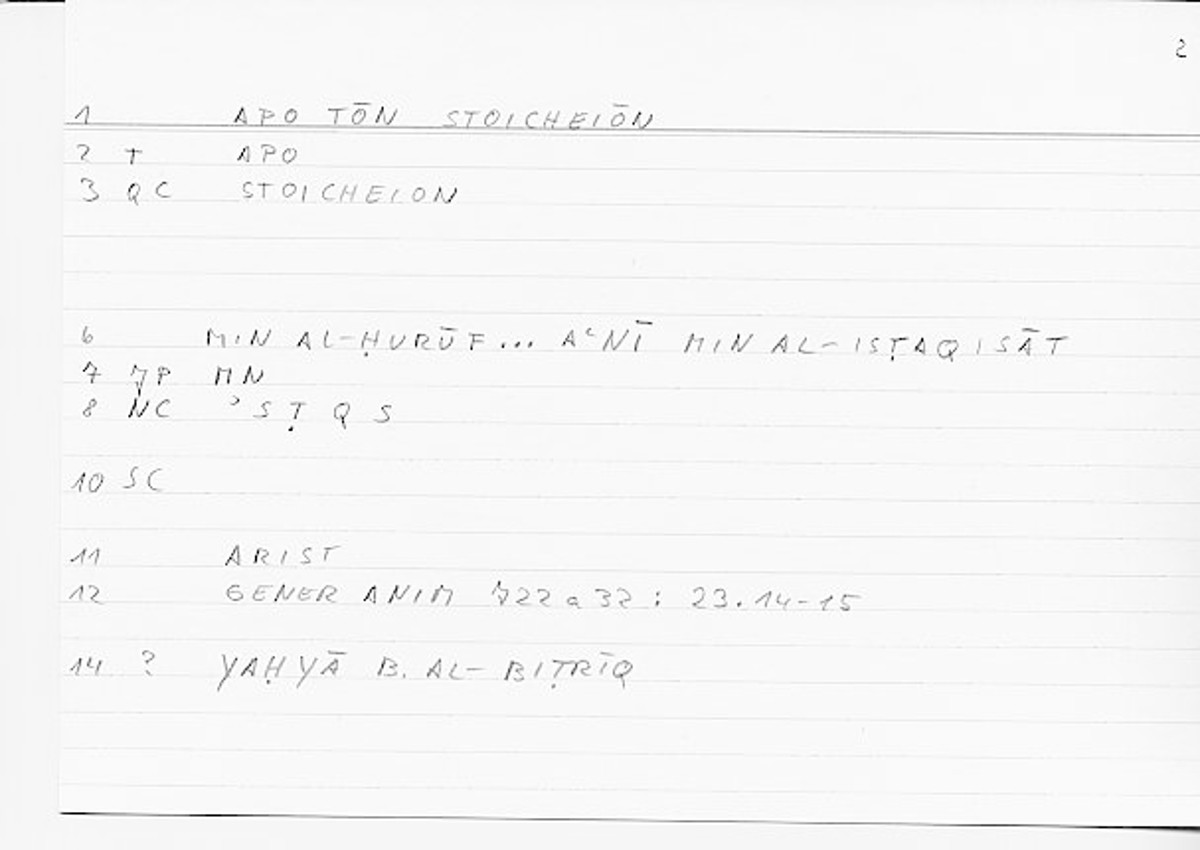 2
1 APO TŌN STOICHEIŌN
2 T APO
3 QC STOICHEION
6 MIN AL-ḤURŪF... AʿNĪ MIN AL-ISṬAQISĀT
7 JP MN
8 NC ʾSṬQS
10 SC
11 ARIST
12 GENER ANIM 722a32: 23.14-15
14 ? YAḤYĀ B. AL-BIṬRĪQ